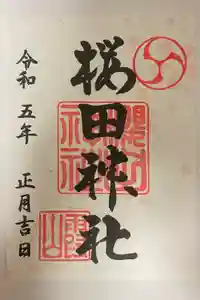 桜田神社
令和五年 正月吉日